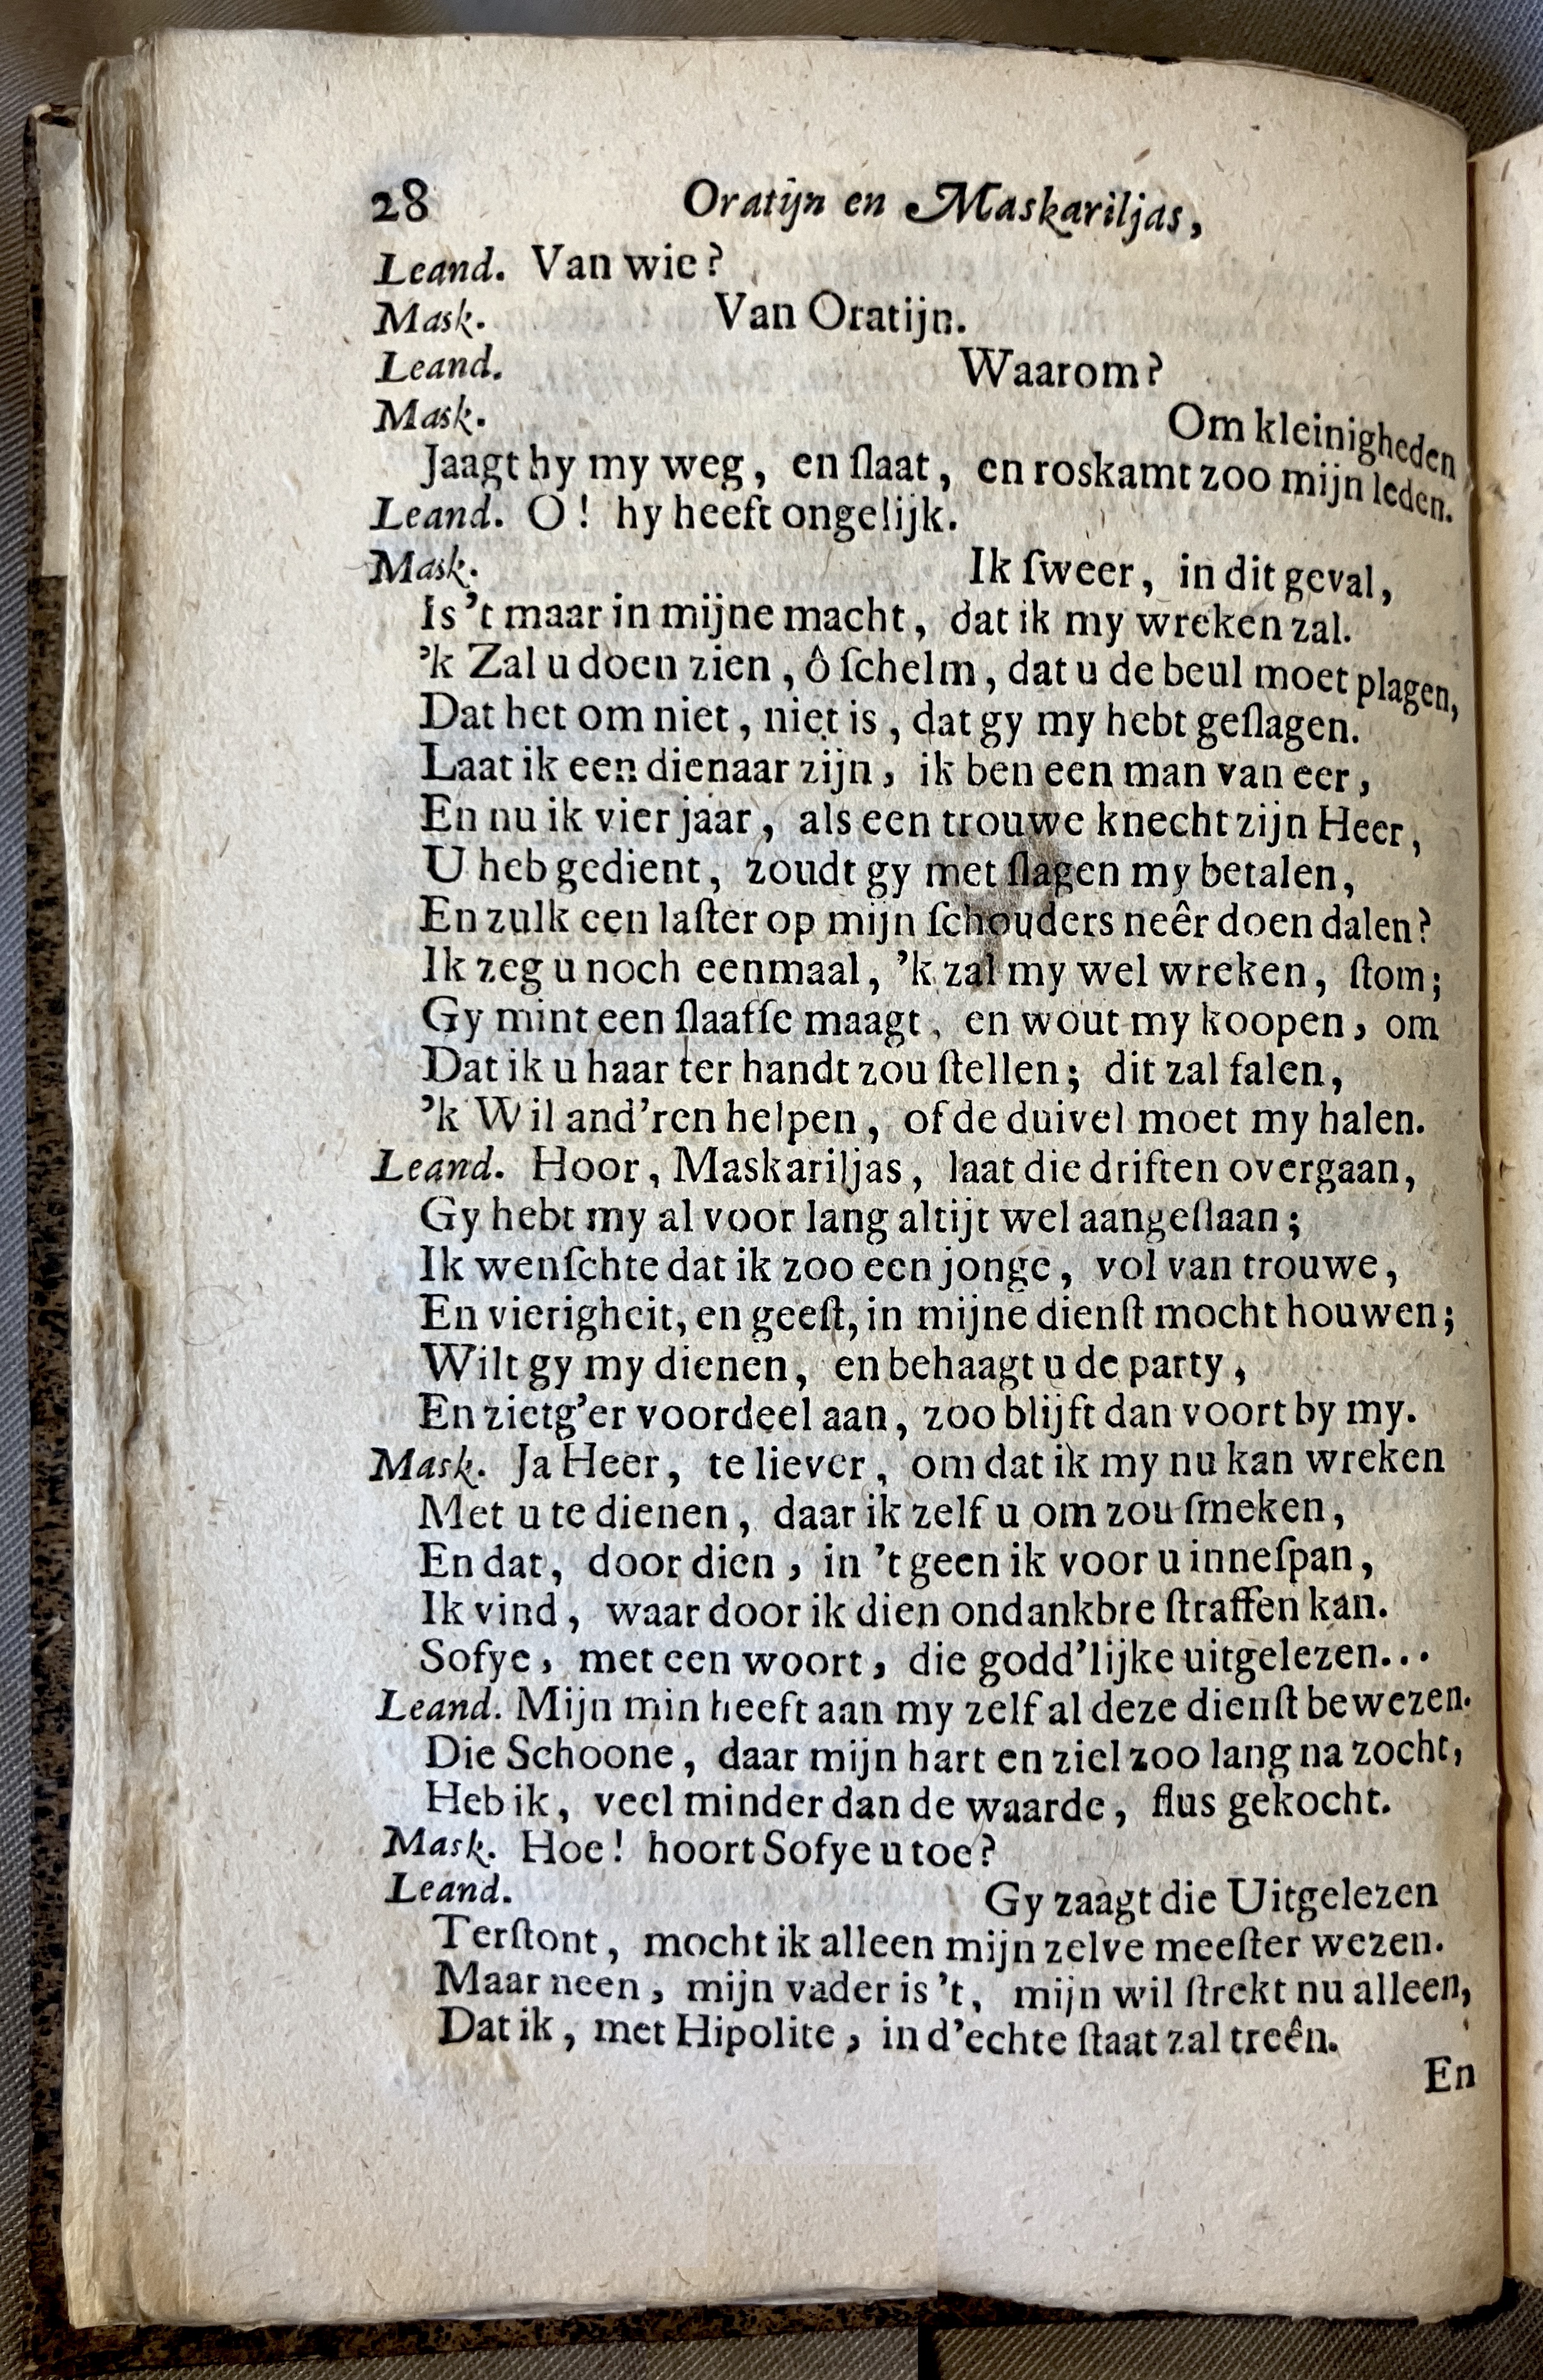 28 Oratijn en Maskariljas,
Leand. Van wie?
Mask. Van Oratijn.
Leand. Waarom?
Mask. Om kleinigheden
Jaagt hy my weg, en ſlaat, en roskamt zoo mijn leden.
Leand. O! hy heeft ongelijk.
Mask. Ik ſweer, in dit geval,
Is 't maar in mijne macht, dat ik my wreken zal.
'k Zal u doen zien, ô ſchelm, dat u de beul moet plagen,
Dat het om niet, niet is, dat gy my hebt geſlagen.
Laat ik een dienaar zijn, ik ben een man van eer,
En nu ik vier jaar, als een trouwe knecht zijn Heer,
U heb gedient, zoudt gy met ſlagen my betalen,
En zulk een laſter op mijn ſchouders neêr doen dalen?
Ik zeg u noch eenmaal, 'k zal my wel wreken, ſtom;
Gy mint een ſlaafſe maagt, en wout my koopen, om
Dat ik u haar ter handt zou ſtellen; dit zal falen,
'k Wil and'ren helpen, of de duivel moet my halen.
Leand. Hoor, Maskariljas, laat die driften overgaan,
Gy hebt my al voor lang altijt wel aangeſlaan;
Ik wenſchte dat ik zoo een jonge, vol van trouwe,
En vierigheit, en geeſt, in mijne dienſt mocht houwen;
Wilt gy my dienen, en behaagt u de party,
En zietg'er voordeel aan, zoo blijft dan voort by my.
Mask. Ja Heer, te liever, om dat ik my nu kan wreken
Met u te dienen, daar ik zelf u om zou ſmeken,
En dat, door dien, in 't geen ik voor u inneſpan,
Ik vind, waar door ik dien ondankbre ſtraffen kan.
Sofye, met een woort, die godd'lijke uitgelezen...
Leand. Mijn min heeft aan my zelf al deze dienſt bewezen.
Die Schoone, daar mijn hart en ziel zoo lang na zocht,
Heb ik, veel minder dan de waarde, flus gekocht.
Mask. Hoe! hoort Sofye u toe?
Leand. Gy zaagt die Uitgelezen
Terſtont, mocht ik alleen mijn zelve meeſter wezen.
Maar neen, mijn vader is 't, mijn wil ſtrekt nu alleen,
Dat ik, met Hipolite, in d'echte ſtaat zal treên.
En